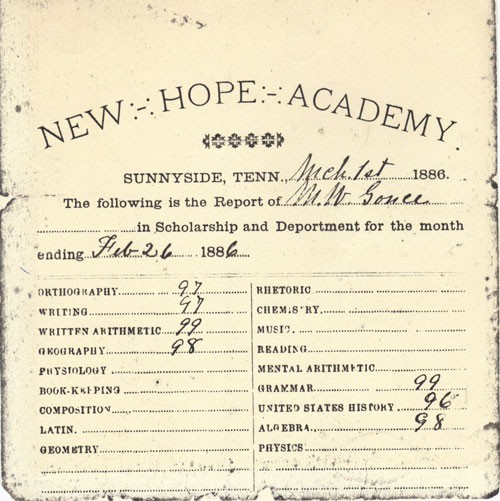 NEW -:- HOPE -:- ACADEMY.
SUNNYSIDE, TENN., Mch. 1st 1886.
The following is the Report of M. W. Gonce
in Scholarship and Deportment for the month
ending Feb 26 1886
ORTHOGRAPHY 97
WRITING 97
WRITTEN ARITHMETIC 99
GEOGRAPHY 98
PHYSIOLOGY
BOOK-KEEPING
COMPOSITION
LATIN.
GEOMETRY
RHETORIC
CHEMISTRY.
MUSIC.
READING
MENTAL ARITHMETIC
GRAMMAR 99
UNITED STATES HISTORY 96
ALGEBRA 98
PHYSICS